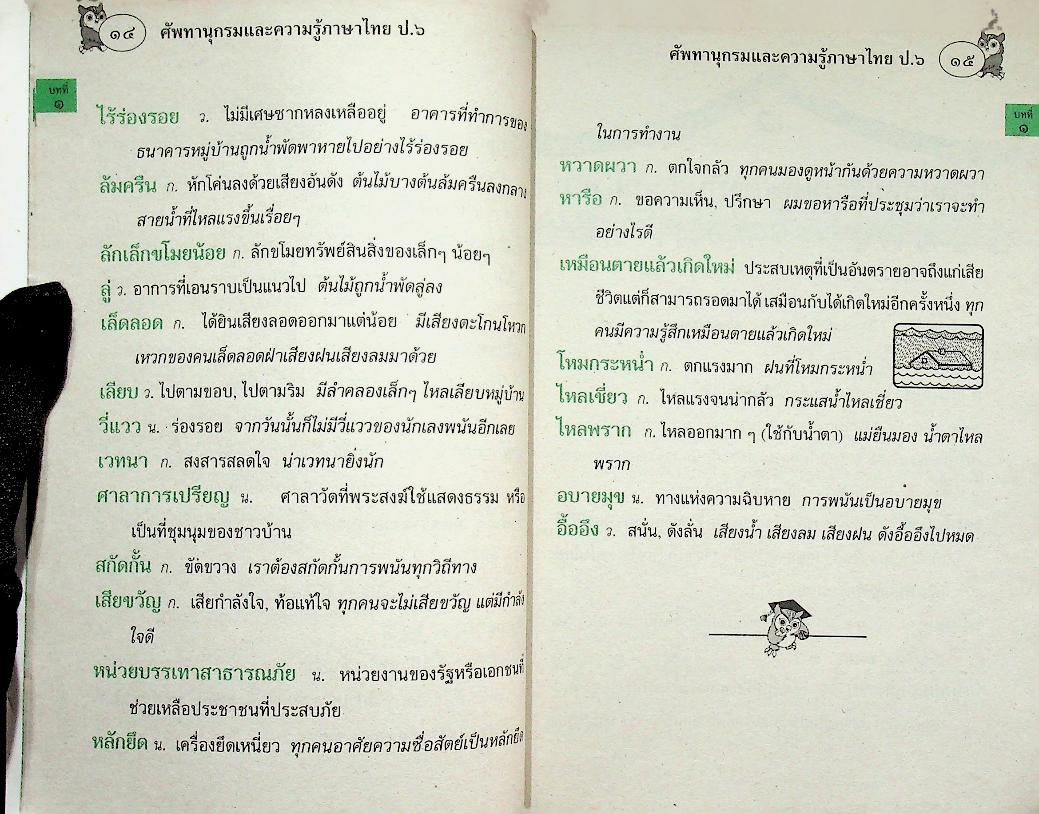 ๑๔ ศัพทานุกรมและความรู้ภาษาไทย ป.๖
บทที่
๑
ไร้ร่องรอย ว. ไม่มีเศษซากหลงเหลืออยู่ อาคารที่ทำการของ
ธนาคารหมู่บ้านถูกน้ำพัดพาหายไปอย่างไร้ร่องรอย
ล้มครืน ก. หักโค่นลงด้วยเสียงอันดัง ต้นไม้บางต้นล้มครืนลงกลาง
สายน้ำที่ไหลแรงขึ้นเรื่อยๆ
ลักเล็กขโมยน้อย ก. ลักขโมยทรัพย์สินสิ่งของเล็กๆ น้อยๆ
ลู่ ว. อาการที่เอนราบเป็นแนวไป ต้นไม้ถูกน้ำพัดลู่ลง
เล็ดลอด ก. ได้ยินเสียงลอดออกมาแต่น้อย มีเสียงตะโกนโหวก
เหวกของคนเล็ดลอดฝ่าเสียงฝนเสียงลมมาด้วย
เลียบ ว. ไปตามขอบ, ไปตามริม มีลำคลองเล็กๆ ไหลเลียบหมู่บ้าน
วี่แวว น. ร่องรอย จากวันนั้นก็ไม่มีวี่แววของนักเลงพนันอีกเลย
เวทนา ก. สงสารสลดใจ น่าเวทนายิ่งนัก
ศาลาการเปรียญ น. ศาลาวัดที่พระสงฆ์ใช้แสดงธรรม หรือ
เป็นที่ชุมนุมของชาวบ้าน
สกัดกั้น ก. ขัดขวาง เราต้องสกัดกั้นการพนันทุกวิถีทาง
เสียขวัญ ก. เสียกำลังใจ, ท้อแท้ใจ ทุกคนจะไม่เสียขวัญ แต่มีกำลัง
ใจดี
หน่วยบรรเทาสาธารณภัย น. หน่วยงานของรัฐหรือเอกชนที่
ช่วยเหลือประชาชนที่ประสบภัย
หลักยึด น. เครื่องยึดเหนี่ยว ทุกคนอาศัยความซื่อสัตย์เป็นหลักยึด
ศัพทานุกรมและความรู้ภาษาไทย ป.๖ ๑๕
บทที่
๑
ในการทำงาน
หวาดผวา ก. ตกใจกลัว ทุกคนมองดูหน้ากันด้วยความหวาดผวา
หารือ ก. ขอความเห็น, ปรึกษา ผมขอหารือที่ประชุมว่าเราจะทำ
อย่างไรดี
เหมือนตายแล้วเกิดใหม่ ประสบเหตุที่เป็นอันตรายอาจถึงแก่เสีย
ชีวิตแต่ก็สามารถรอดมาได้ เสมือนกับได้เกิดใหม่อีกครั้งหนึ่ง ทุก
คนมีความรู้สึกเหมือนตายแล้วเกิดใหม่
โหมกระหน่ำ ก. ตกแรงมาก ฝนที่โหมกระหน่ำ
ไหลเชี่ยว ก. ไหลแรงจนน่ากลัว กระแสน้ำไหลเชี่ยว
ไหลพราก ก. ไหลออกมาก ๆ (ใช้กับน้ำตา) แม่ยืนมอง น้ำตาไหล
พราก
อบายมุข น. ทางแห่งความฉิบหาย การพนันเป็นอบายมุข
อื้ออึง ว. สนั่น, ดังลั่น เสียงน้ำ เสียงลม เสียงฝน ดังอื้ออึงไปหมด